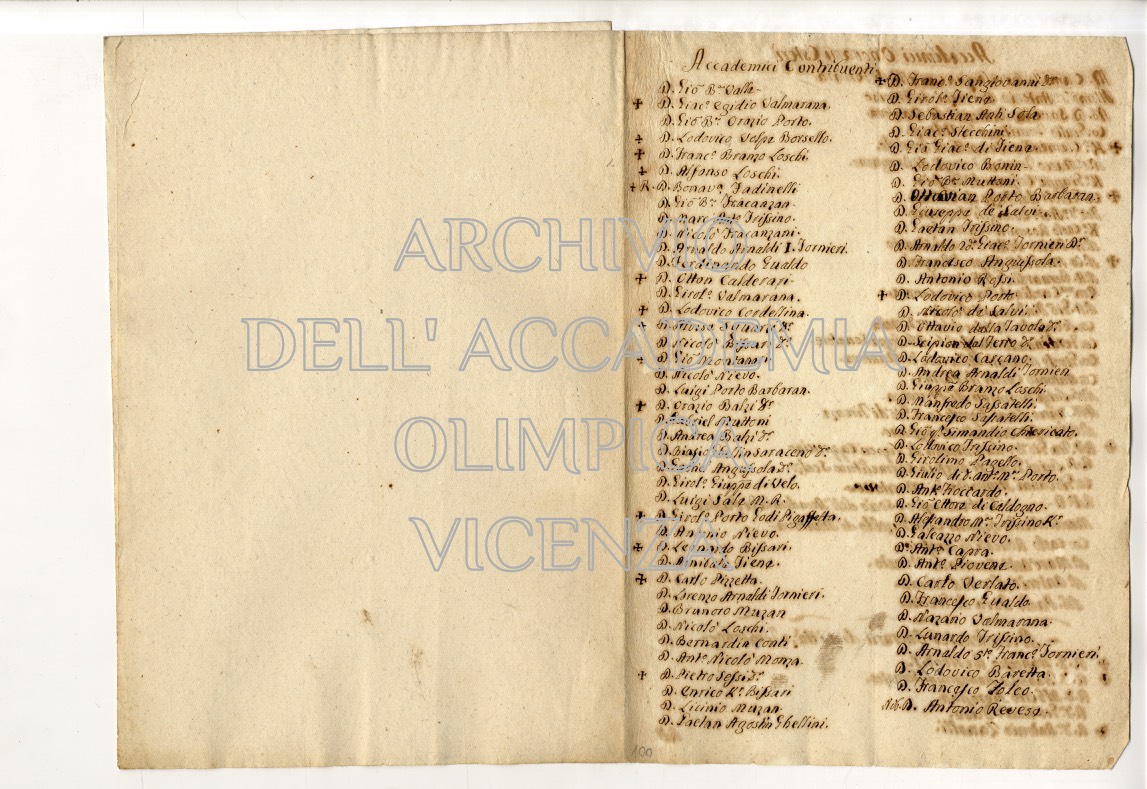 Accademici Contribuenti
D. Gio Bᵃ Valle
✝ D. Giacᵒ Egidio Valmarana
D. Gio Bᵃ Orazio Porto.
✝ D. Lodovico Volpe Borsello.
✝ D. Francᵒ Branzo Loschi.
✝ D. Alfonso Loschi.
✝ R. D. Bonavᵃ Fadinelli
D. Gio Bᵃ Fracanzan.
D. Marc Antᵒ Trissino.
D. Nicolò Fracanzani.
D. Arnaldo Arnaldi I. Tornieri.
D. Ferdinando Gualdo
✝ D. Otton Calderari
D. Girolᵒ Valmarana.
✝ D. Lodovico Cordellina.
D. Nicolò Bissari Dʳ
✝ D. Gio Montanari
D. Nicolò Nievo.
D. Luigi Porto Barbaran.
✝ D. Orazio Balzi Dʳ
D. Gabriel Muttoni
D. Andrea Balzi Dʳ
D. Biasio Saraceno Dʳ
D. Angussola Dʳ
D. Girolᵒ Giuppe di Velo.
D. Luigi Sale M. R.
✝ D. Girolᵒ Porto Godi Pigaffetta.
D. Antonio Nievo.
✝ D. Leonardo Bissari.
D. Annibale Tiene.
✝ D. Carlo Pizzetta.
D. Lorenzo Arnaldi Tornieri.
D. Brunoro Muzan
D. Nicolò Loschi.
D. Bernardin Conti.
D. Antᵒ Nicolò Monza
✝ D. Pietro Sessi Dʳ
D. Enrico Kʳ Bissari
D. Licinio Muzan.
D. Gaetan Agostin Ghellini.
✝ D. Francᵒ Sangiovanni Dʳ
D. Girolᵒ Tiene
D. Sebastian Antᵒ Sola
D. Giacᵒ Stecchini.
D. Gio Giacᵒ di Tiene. ✝
D. Lodovico Bonin
D. Gio Bᵃ Muttoni.
D. Ottavian Porto Barbaran ✝
D. Giuseppe de Salvi
D. Gaetan Trissino.
D. Arnaldo Giacᵒ Tornieri Dʳ
D. Francesco Anguissola. ✝
D. Antonio Rossi.
✝ D. Lodovico Porto
D. Nicolò de Salvi.
D. Ottavio dalla Tavola Dʳ
D. Scipion dal Ferro Dʳ
D. Lodovico Carcano.
D. Andrea Arnaldi Tornieri
D. Giuppe Branzo Loschi.
D. Manfredo Sassatelli.
D. Francesco Sassatelli.
D. Gio qᵐ Simandio Chiericato.
D. Lodovico Trissino.
D. Girolimo Pagello.
D. Giulio di Antᵒ Mᵃ Porto.
D. Antᵒ Roccardo.
D. Gio Ettore di Caldogno.
D. Alessandro Mᵃ Trissino Kʳ
D. Galeazzo Nievo.
D. Antᵒ Capra.
D. Antᵒ Piovene
D. Carlo Verlato.
D. Francesco Gualdo.
D. Nazario Valmarana.
D. Lunardo Trissino.
D. Arnaldo Francᵒ Tornieri
D. Lodovico Baretta.
D. Francesco Toleo.
Nob. D. Antonio Revese.
100
ARCHIVIO
DELL' ACCADEMIA
OLIMPICA
VICENZA